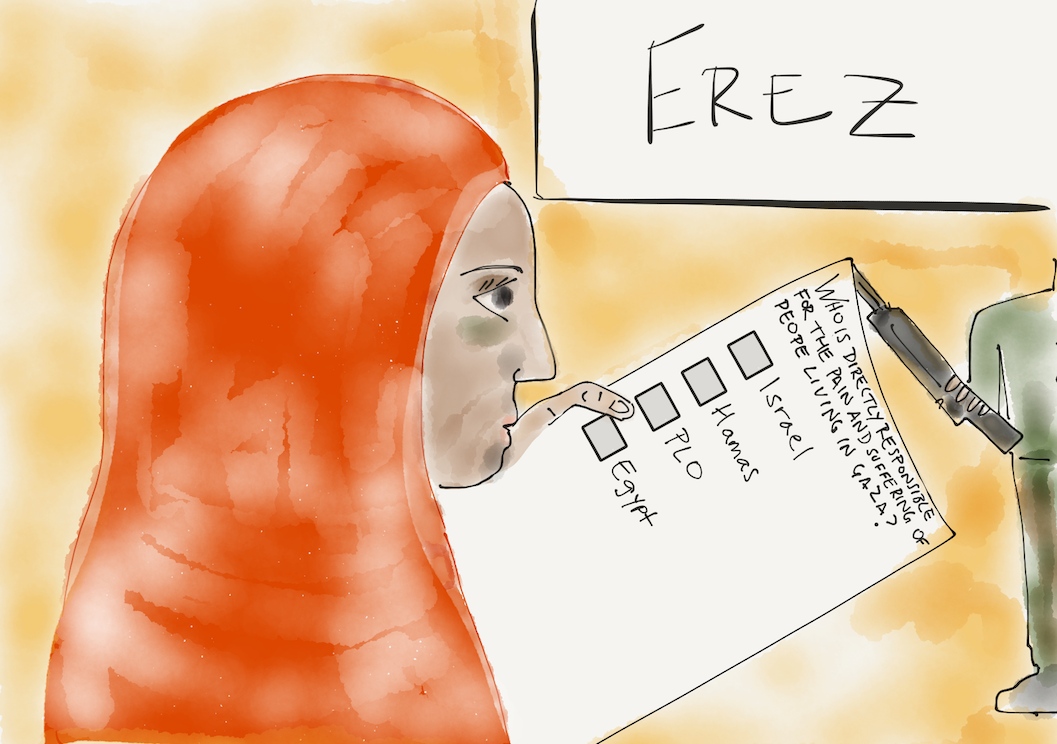 EREZ
WHO IS DIRECTLY RESPONSIBLE
FOR THE PAIN AND SUFFERING OF
PEOPE LIVING IN GAZA?
Israel
Hamas
PLO
Egypt